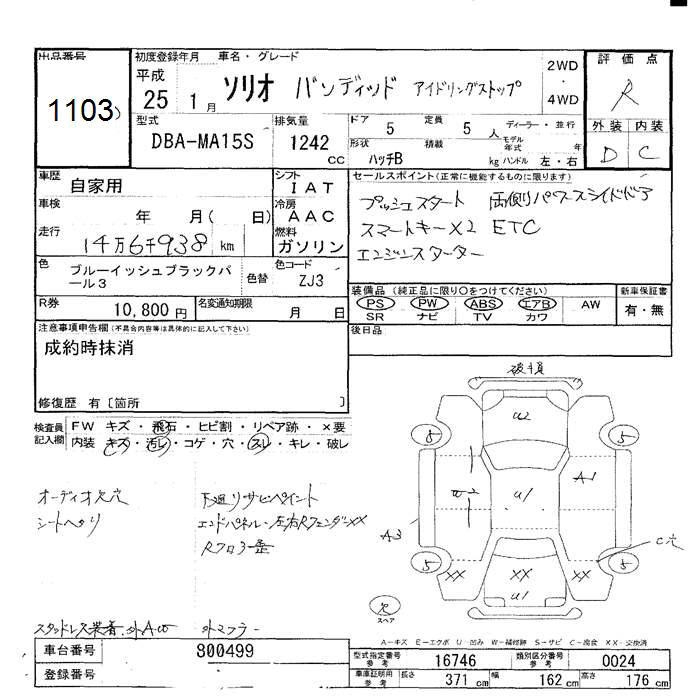 出品番号
1103
初度登録年月 車名・グレード
平成
25 1月 ソリオ バンディッド アイドリングストップ
2WD
・
4WD
評価点
R
外装 内装
D C
型式 排気量 ドア 定員 ディーラー・並行
DBA-MA15S 1242 cc 5 5人
モデル年式 年
形状 積載
ハッチB kg ハンドル 左・右
車歴 シフト セールスポイント(正常に機能するものに限ります)
自家用 IAT
車検 冷房
年 月( 日) AAC
走行 燃料
14万6千938 km ガソリン
プッシュスタート 両側パワースライドドア
スマートキーX2 ETC
エンジンスターター
色 色替 色コード
ブルーイッシュブラックパール3 ZJ3
装備品(純正品に限り○をつけてください) 新車保証書
PS PW ABS エアB AW 有・無
SR ナビ TV カワ
R券 10,800円 名変通知期限 月 日
後日品
注意事項申告欄(不具合内容等は具体的に記入して下さい)
成約時抹消
修復歴 有[箇所 ]
検査員記入欄
FW キズ・飛石・ヒビ割・リペア跡・×要
内装 キズ・汚レ・コゲ・穴・スレ・キレ・破レ
オーディオ欠穴
シートヘタリ
下廻りサビペイント
エンドパネル・左右RフェンダーXX
Rフロ
スタッドレス装着
外マフラー
破損
U2
5 5
A1
U1
A3
C穴
5 5
XX XX XX
U1
欠
スペア
A-キズ E-エクボ U-凹み W-補修跡 S-サビ C-腐食 XX-交換済
車台番号 800499
登録番号
型式指定番号 参考 16746 類別区分番号 参考 0024
車庫証明用 参考 長さ 371cm 幅 162cm 高さ 176cm